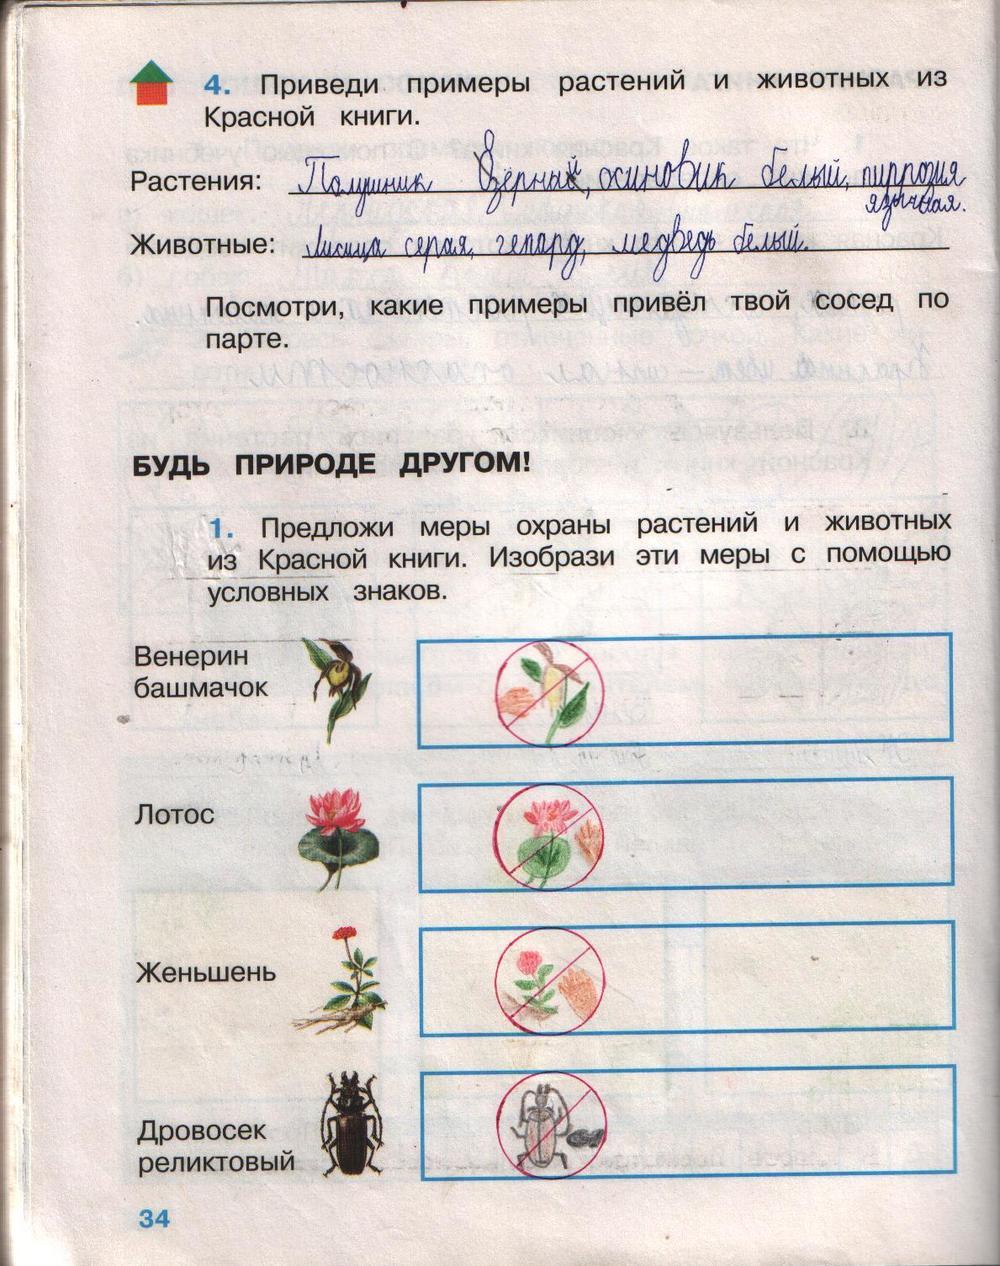 4. Приведи примеры растений и животных из
Красной книги.
Растения: Полушник Озёрный, осиновик белый,
язычная.
Животные: лисица серая, гепард, медведь белый.
Посмотри, какие примеры привёл твой сосед по
парте.
БУДЬ ПРИРОДЕ ДРУГОМ!
1. Предложи меры охраны растений и животных
из Красной книги. Изобрази эти меры с помощью
условных знаков.
Венерин
башмачок
Лотос
Женьшень
Дровосек
реликтовый
34